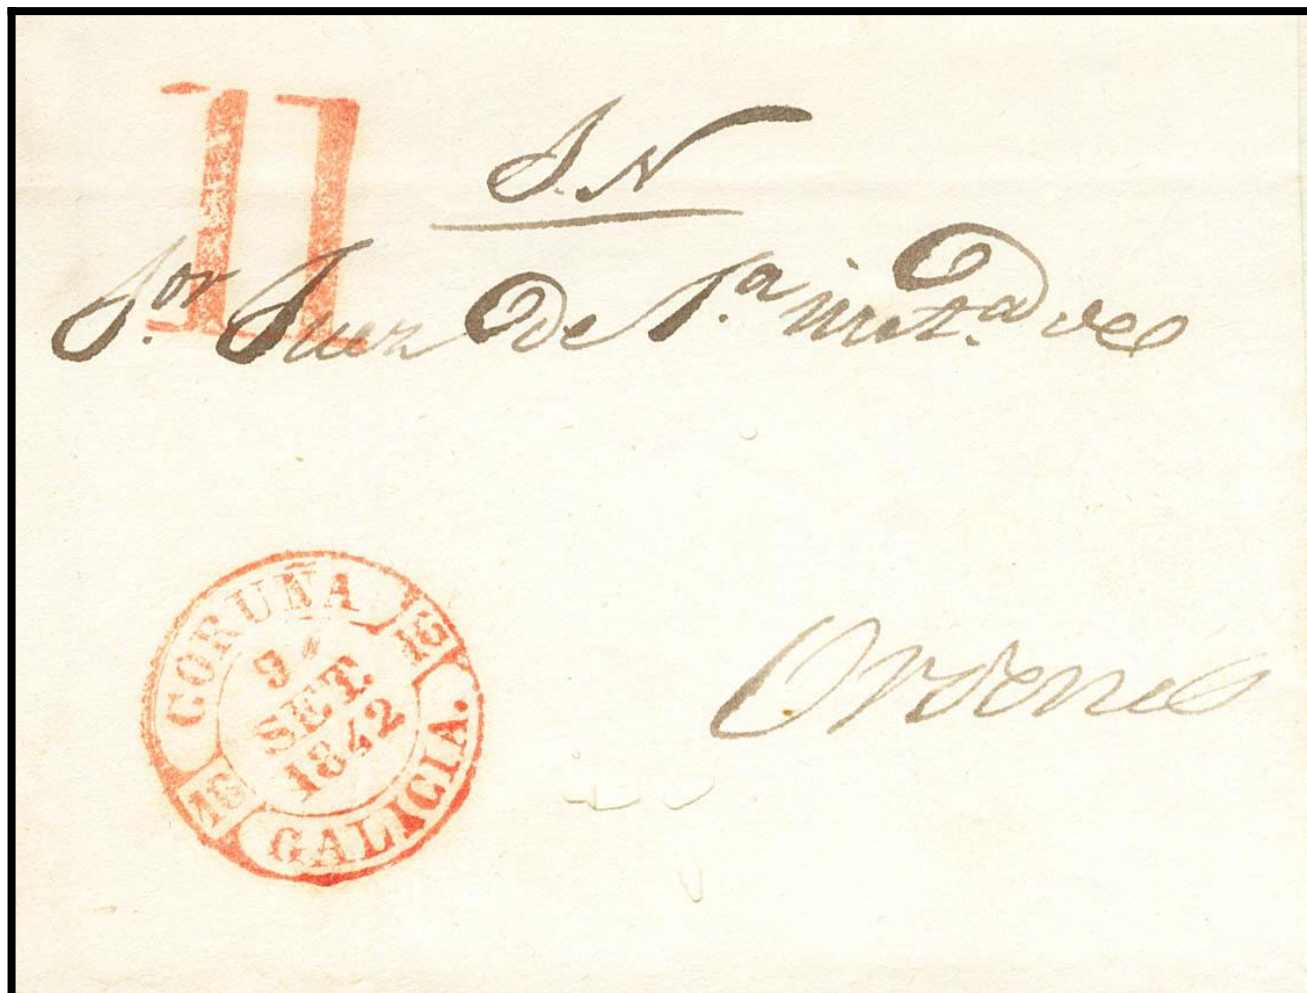 11
S. N
S.or Juez de 1.a inst.a de
Ordenes
CORUÑA
9
SET.
1842
GALICIA.